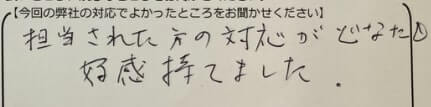 【今回の弊社の対応でよかったところをお聞かせください】
担当された方の対応がどなたも
好感持てました.